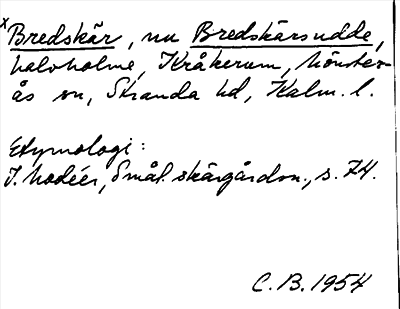 x Bredskär, nu Bredskärsudde,
halvholme, Kråkerum, Mönster-
ås sn, Stranda hd, Kalm. l.
Etymologi:
I. Modéer, Smål. skärgårdsn., s. 74.
C. B. 1954